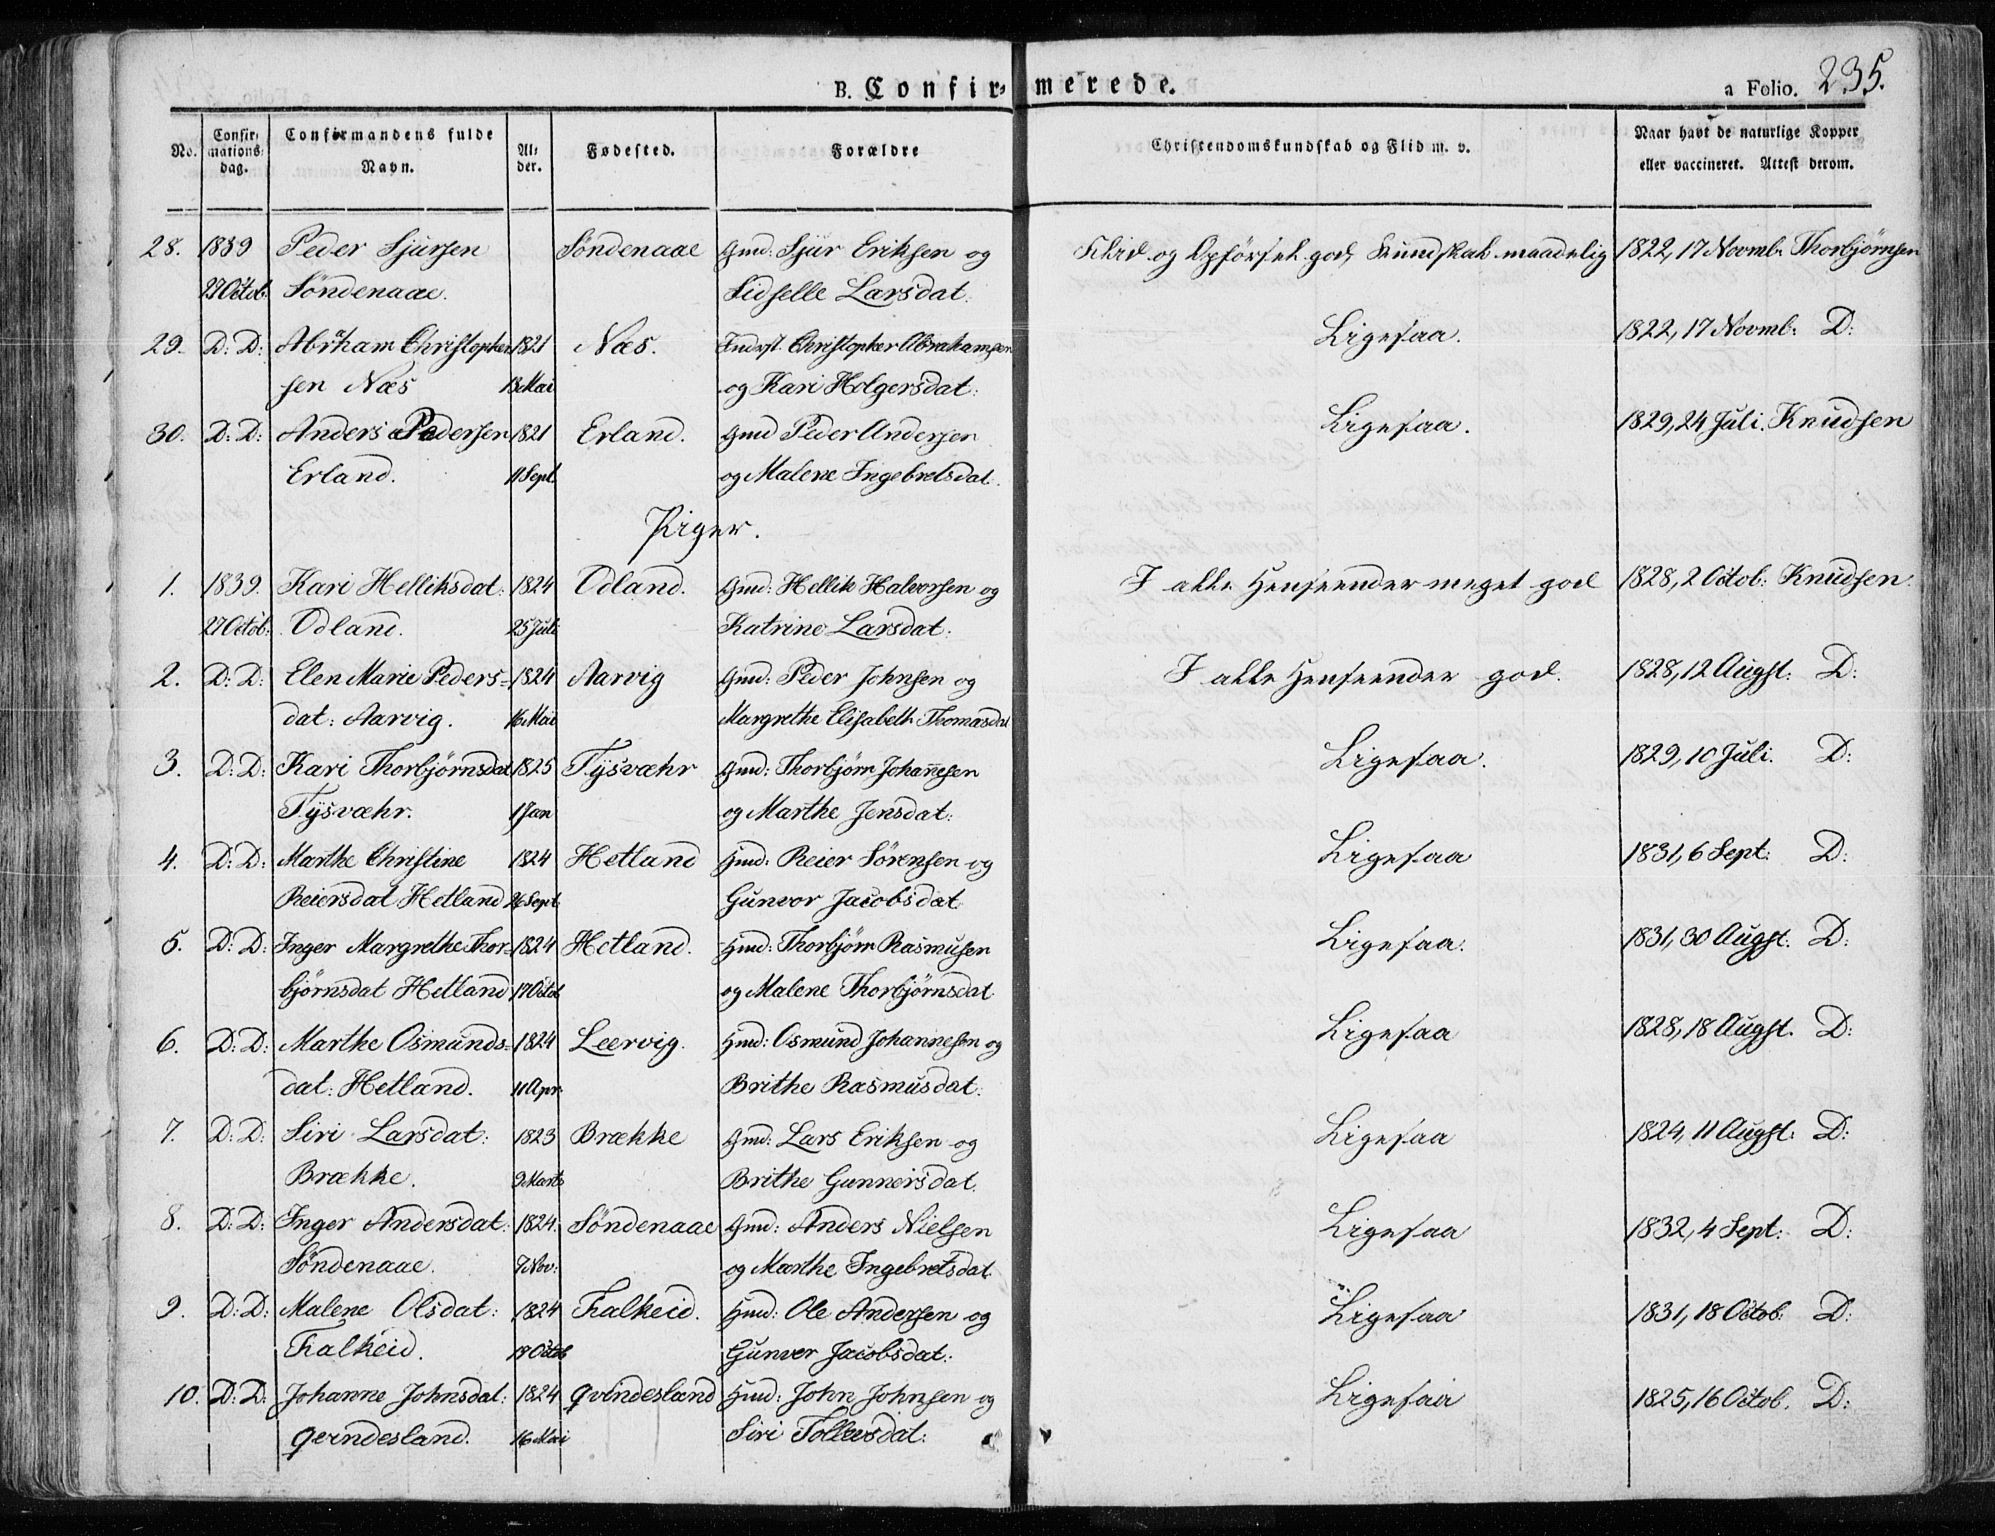 B. Confirmerede.
a Folio. 235.
No. Confirmations dag. Confirmandens fulde Navn. Alder. Fødested. Forældre Christendomskundskab og Flid m. v. Naar havt de naturlige Kopper eller vaccineret. Attest derom.
28. 1839 Peder Sjursen Søndenaae Gmd: Sjur Eriksen og Flid og Opførsel god, Kundskab maadelig 1822, 17 Novmb: Thorbjørnsen
27 Octob: Søndenaae. Sidselle Larsdat:
29. D: D: Abraham Christopher 1821 Næs. Inderst. Christopher Abrahamsen Ligesaa. 1822, 17 Novmb: D:
sen Næs 13 Mai og Kari Holgersdat:
30. D: D: Anders Pedersen 1821 Erland. Gmd Peder Andersen Ligesaa. 1829, 24 Juli. Knudsen
Erland. 11 Sept. og Malene Ingebretsdat.
Piger.
1. 1839. Kari Helliksdat: 1824 Odland. Gmd: Hellik Halvorsen og I alle Henseender meget god 1828, 2 Octob: Knudsen.
27 Octob: Odland. 25 Juli Katrine Larsdat:
2. D: D: Elen Marie Peders- 1824 Aarvig Gmd: Peder Johnsen og I alle Henseender god. 1828, 12 Augst: D:
dat: Aarvig. 16 Mai Margrethe Elisabeth Thomasdat
3. D: D: Kari Thorbjørnsdat 1825 Tysvæhr Gmd: Thorbjørn Johannesen Ligesaa. 1829, 10 Juli. D:
Tysvæhr. 1 Jan og Marthe Jensdat:
4. D: D: Marthe Christine 1824 Hetland Hmd: Reier Sørensen og Ligesaa 1831, 6 Sept: D:
Reiersdat Hetland 26 Sept. Gunvor Jacobsdat
5. D: D: Inger Margrethe Thor- 1824 Hetland. Hmd: Thorbjørn Rasmusen Ligesaa. 1831, 30 Augst: D:
bjørnsdat Hetland 17 Octob og Malene Thorbjørnsdat
6. D: D: Marthe Osmunds- 1824 Leervig. Hmd: Osmund Johannesen og Ligesaa 1828, 18 Augst. D:
dat: Hetland. 11 Apr. Brithe Rasmusdat:
7. D: D: Siri Larsdat: 1823 Brække Gmd: Lars Eriksen og Ligesaa 1824, 11 Augst: D:
Brække. 9 Marts Brithe Gunnersdat.
8. D: D: Inger Andersdat: 1824. Søndenaae Gmd: Anders Nielsen Ligesaa 1832, 4 Sept: D:
Søndenaae. 7 Nov: og Marthe Ingebretsdat
9. D: D: Malene Olsdat: 1824 Falkeid. Hmd: Ole Andersen og Ligesaa 1831, 18 Octob: D:
Falkeid. 19 Octob Gunver Jacobsdat:
10. D: D: Johanne Johnsdat: 1824 Qvindesland Hmd: John Johnsen og Ligesaa 1825, 16 Octob. D:
Qvindesland. 16 Mai Siri Tollevsdat: